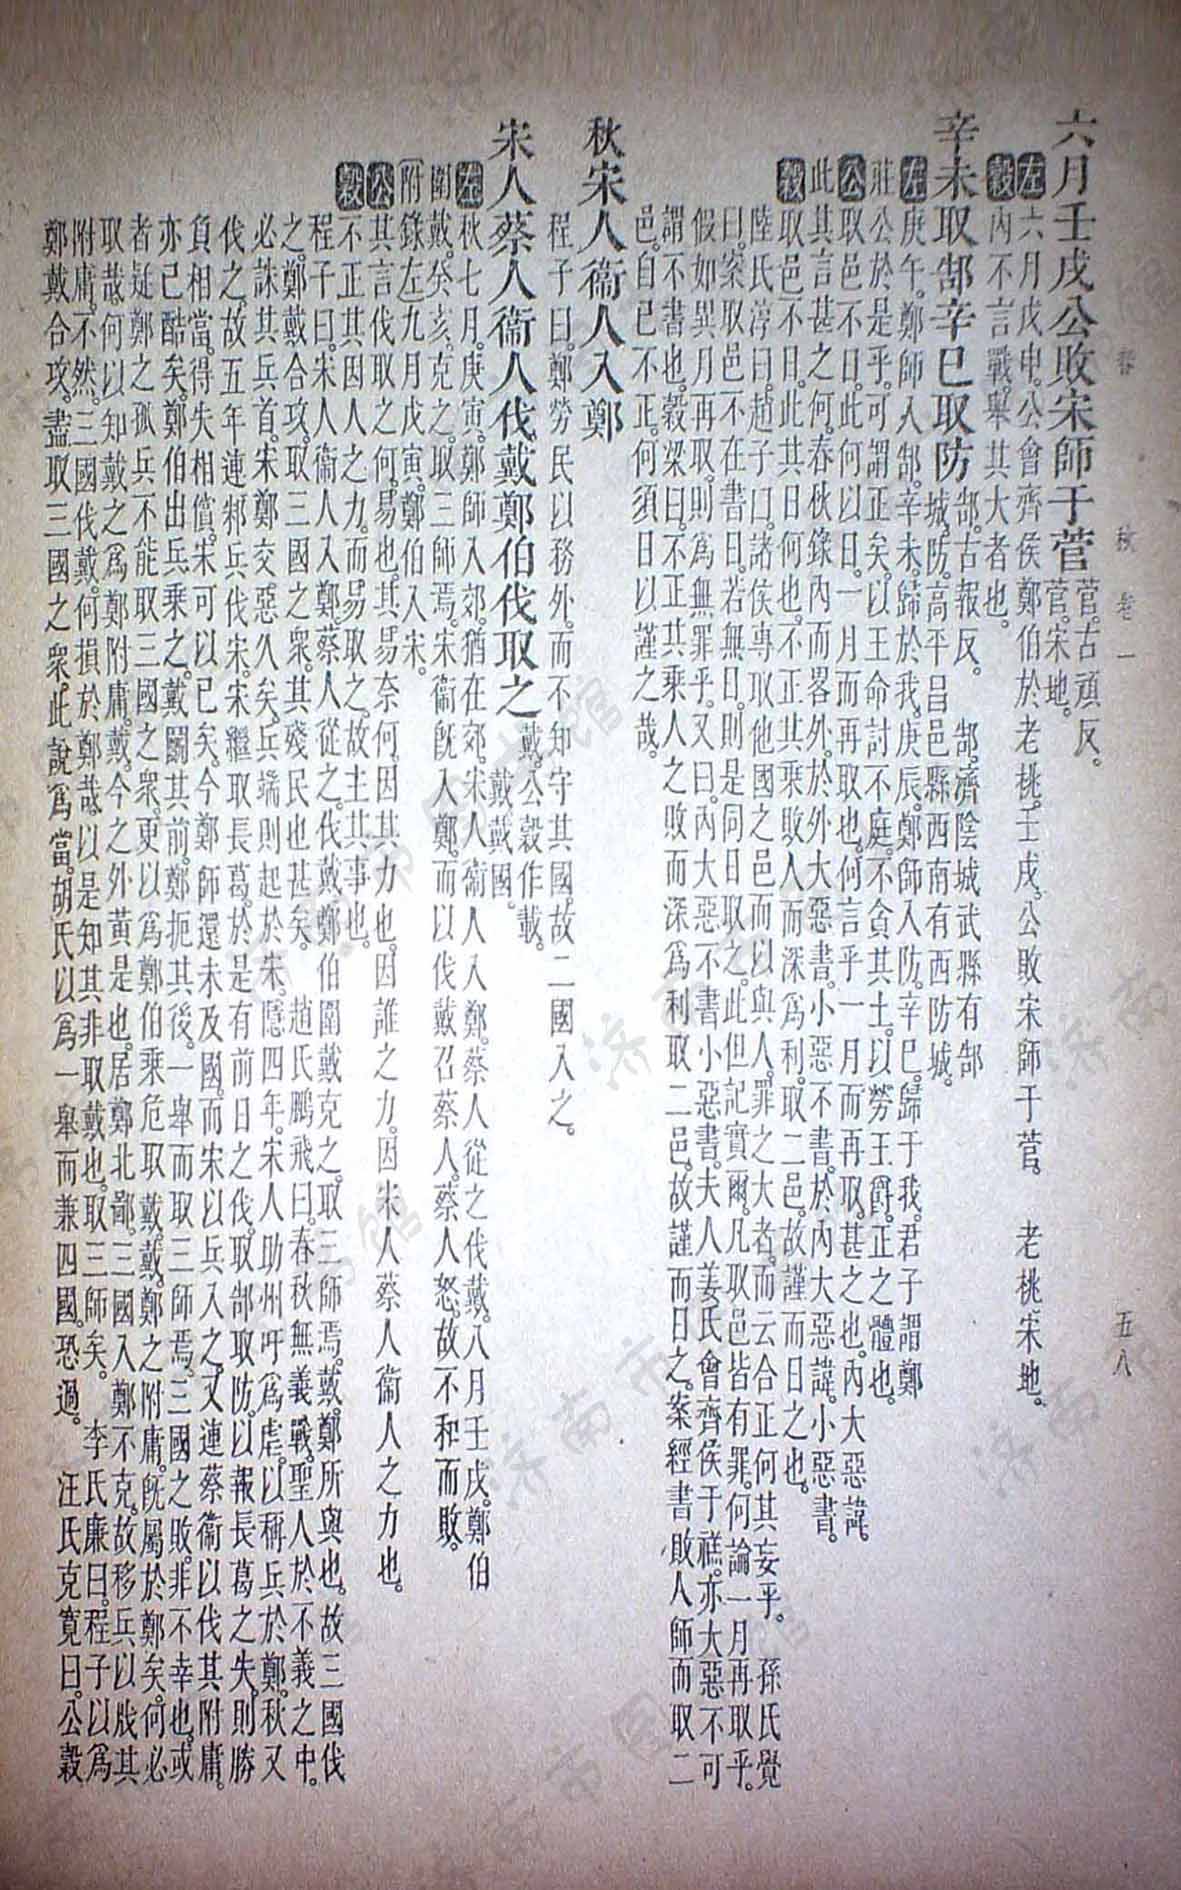 春 秋 卷一 五八
六月壬戌公敗宋師于菅 菅。古頑反。
菅。宋地。
左 六月戊申。公會齊侯鄭伯於老桃。壬戌。公敗宋師于菅。 老桃。宋地。
穀 內不言戰。舉其大者也。
辛未取郜辛巳取防 郜。古報反。 郜。濟陰城武縣有郜
城。防。高平昌邑縣西南有西防城。
左 庚午。鄭師入郜。辛未。歸於我。庚辰。鄭師入防。辛巳。歸于我。君子謂鄭
莊公於是乎。可謂正矣。以王命討不庭。不貪其土。以勞王爵。正之體也。
公 取邑不日。此何以日。一月而再取也。何言乎一月而再取。甚之也。內大惡諱。
此其言甚之何。春秋錄內而畧外。於外大惡書。小惡不書。於內大惡諱。小惡書。
穀 取邑不日。此其日何也。不正其乘敗人而深爲利。取二邑。故謹而日之也。
陸氏淳曰。趙子曰。諸侯專取他國之邑而以與人。罪之大者。而云合正何其妄乎。 孫氏覺
曰。案取邑不在書日。若無日。則是同日取之。此但記實爾。凡取邑皆有罪。何論一月再取乎。
假如異月再取。則爲無罪乎。又曰。內大惡不書。小惡書。夫人姜氏會齊侯于禚。亦大惡不可
謂不書也。穀梁曰。不正其乘人之敗而深爲利取二邑。故謹而日之。案經書敗人師而取二
邑。自已不正。何須日以謹之哉。
秋宋人衞人入鄭
程子曰。鄭勞民以務外。而不知守其國。故二國入之。
宋人蔡人衞人伐戴鄭伯伐取之 戴。公穀作載。
戴。戴國。
左 秋七月。庚寅。鄭師入郊。猶在郊。宋人衞人入鄭。蔡人從之伐戴。八月壬戌。鄭伯
圍戴。癸亥。克之。取三師焉。宋衞既入鄭。而以伐戴召蔡人。蔡人怒。故不和而敗。
附錄左 九月戊寅。鄭伯入宋。
公 其言伐取之何。易也。其易奈何。因其力也。因誰之力。因宋人蔡人衞人之力也。
穀 不正其因人之力。而易取之。故主其事也。
程子曰。宋人衞人入鄭。蔡人從之。伐戴。鄭伯圍戴克之。取三師焉。戴。鄭所與也。故三國伐
之。鄭戴合攻。取三國之衆。其殘民也甚矣。 趙氏鵬飛曰。春秋無義戰。聖人於不義之中。
必誅其兵首。宋鄭交惡久矣。兵端則起於宋。隱四年。宋人助州吁爲虐。以稱兵於鄭。秋又
伐之。故五年連邾兵伐宋。宋繼取長葛。於是有前日之伐。取郜取防。以報長葛之失。則勝
負相當。得失相償。宋可以已矣。今鄭師還未及國。而宋以兵入之。又連蔡衞以伐其附庸。
亦已酷矣。鄭伯出兵乘之。戴鬭其前。鄭扼其後。一舉而取三師焉。三國之敗。非不幸也。或
者疑鄭之孤兵不能取三國之衆。更以爲鄭伯乘危取戴。戴。鄭之附庸。既屬於鄭矣。何必
取哉。何以知戴之爲鄭附庸。戴。今之外黃是也。居鄭北鄙。三國入鄭不克。故移兵以戕其
附庸。不然。三國伐戴。何損於鄭哉。以是知其非取戴也。取三師矣。 李氏廉曰。程子以爲
鄭戴合攻。盡取三國之衆。此說爲當。胡氏以爲一舉而兼四國。恐過。 汪氏克寬曰。公穀